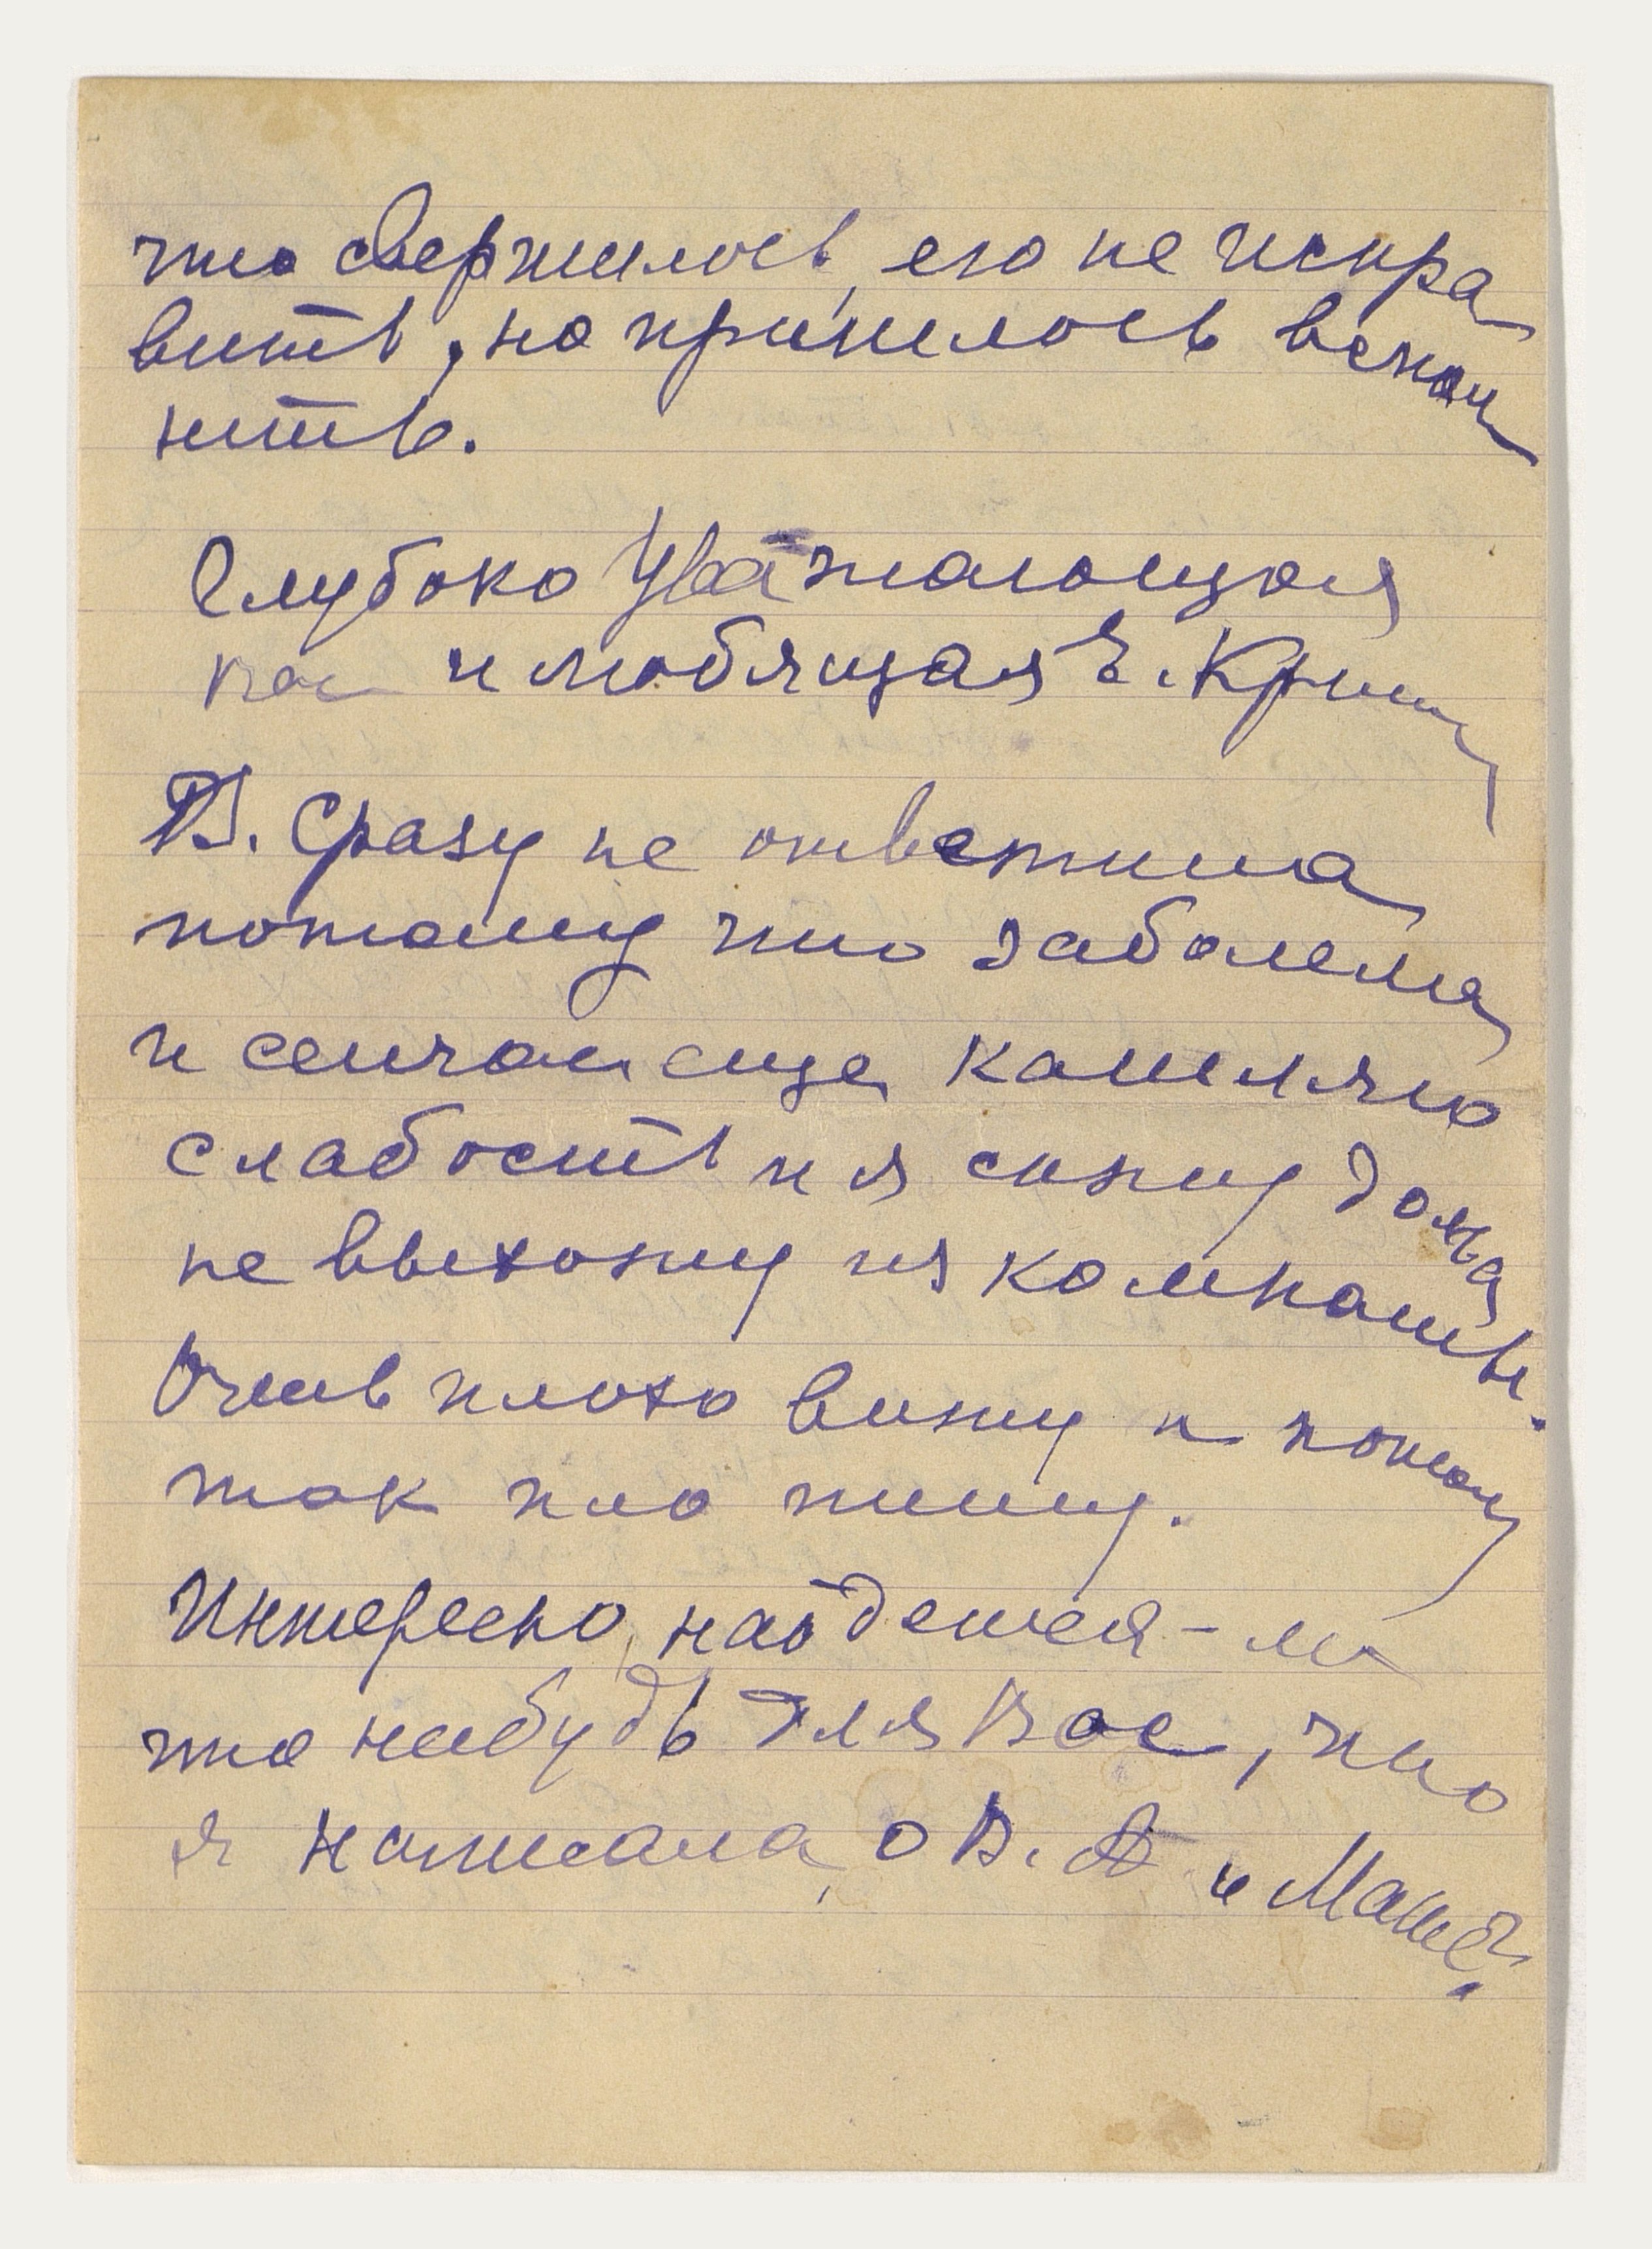 что свершилось, его не испра
вить, но пришлось вспом
нить.
Глубоко Уважающая
Вас и любящая Е. Криш
P.S. Сразу не ответила
потому что заболела
и сейчас еще кашляю
слабость и я сижу дома
не выхожу из комнаты.
Очень плохо вижу и потому
так пло пишу.
Интересно, найдется-ли
что нибудь для Вас, что
я написала, о В. А и Маше?